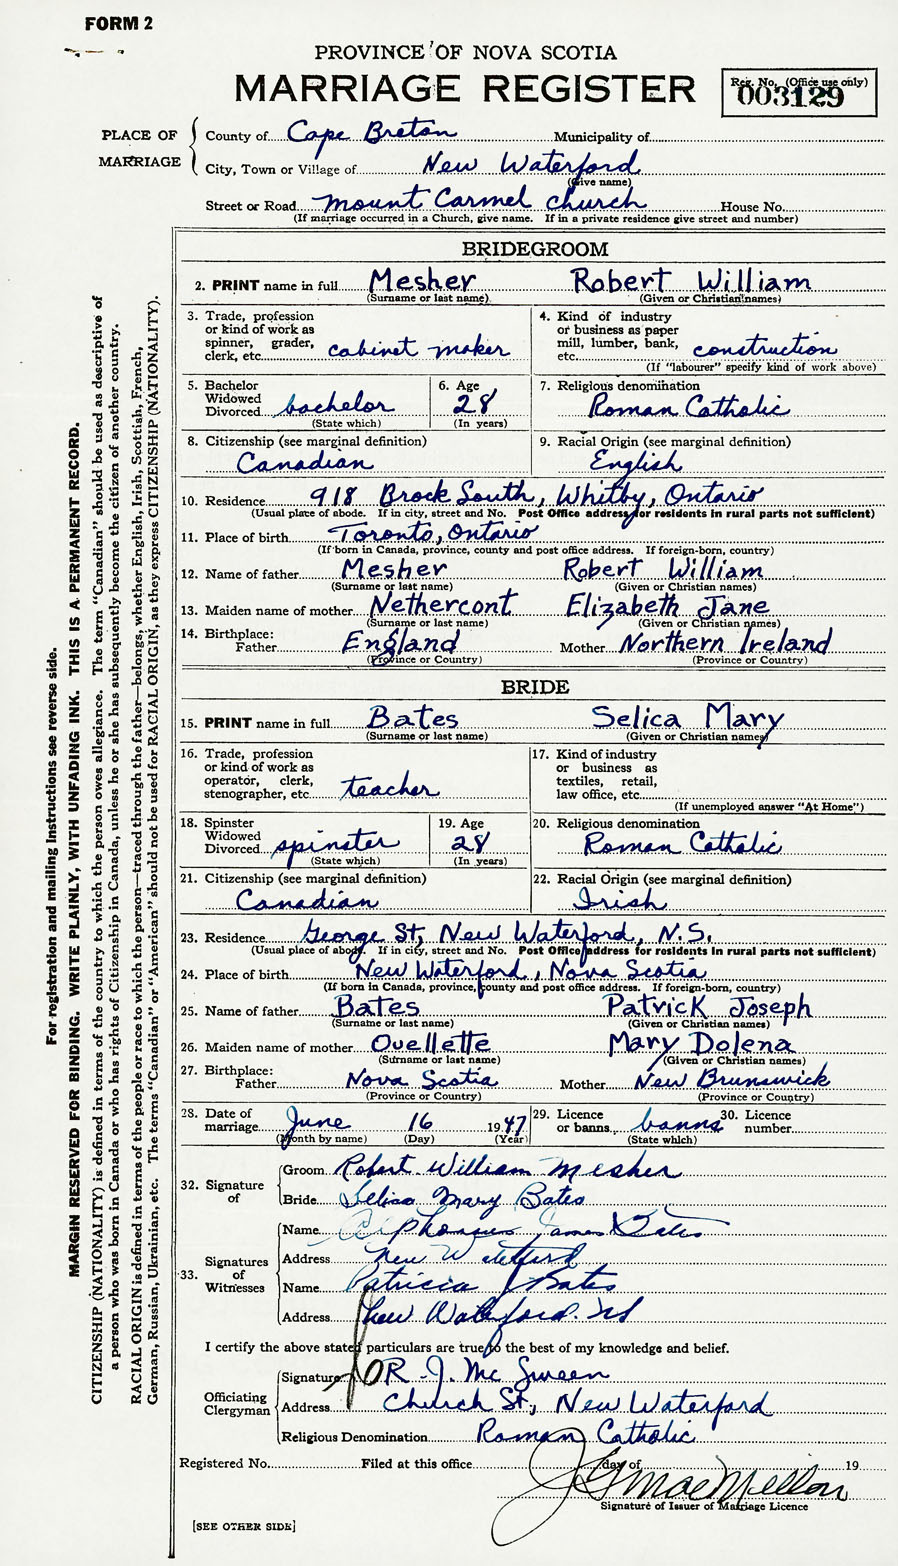 FORM 2
PROVINCE OF NOVA SCOTIA
MARRIAGE REGISTER
Reg. No. (Office use only)
003129
PLACE OF MARRIAGE
County of Cape Breton Municipality of
City, Town or Village of New Waterford
(Give name)
Street or Road mount Carmel church House No.
(If marriage occurred in a Church, give name. If in a private residence give street and number)
BRIDEGROOM
2. PRINT name in full Mesher Robert William
(Surname or last name) (Given or Christian names)
3. Trade, profession or kind of work as spinner, grader, clerk, etc. cabinet maker
4. Kind of industry or business as paper mill, lumber, bank, etc. construction
(If "labourer" specify kind of work above)
5. Bachelor Widowed Divorced bachelor
(State which)
6. Age 28
(In years)
7. Religious denomination Roman Catholic
8. Citizenship (see marginal definition) Canadian
9. Racial Origin (see marginal definition) English
10. Residence 918 Brock South, Whitby, Ontario
(Usual place of abode. If in city, street and No. Post Office address for residents in rural parts not sufficient)
11. Place of birth Toronto, Ontario
(If born in Canada, province, county and post office address. If foreign-born, country)
12. Name of father Mesher Robert William
(Surname or last name) (Given or Christian names)
13. Maiden name of mother Nethercont Elizabeth Jane
(Surname or last name) (Given or Christian names)
14. Birthplace:
Father England Mother Northern Ireland
(Province or Country) (Province or Country)
BRIDE
15. PRINT name in full Bates Selica Mary
(Surname or last name) (Given or Christian names)
16. Trade, profession or kind of work as operator, clerk, stenographer, etc. teacher
17. Kind of industry or business as textiles, retail, law office, etc.
(If unemployed answer "At Home")
18. Spinster Widowed Divorced spinster
(State which)
19. Age 28
(In years)
20. Religious denomination Roman Catholic
21. Citizenship (see marginal definition) Canadian
22. Racial Origin (see marginal definition) Irish
23. Residence George St, New Waterford, N.S.
(Usual place of abode. If in city, street and No. Post Office address for residents in rural parts not sufficient)
24. Place of birth New Waterford, Nova Scotia
(If born in Canada, province, county and post office address. If foreign-born, country)
25. Name of father Bates Patrick Joseph
(Surname or last name) (Given or Christian names)
26. Maiden name of mother Ouellette Mary Dolena
(Surname or last name) (Given or Christian names)
27. Birthplace:
Father Nova Scotia Mother New Brunswick
(Province or Country) (Province or Country)
28. Date of marriage June 16 1947
(Month by name) (Day) (Year)
29. Licence or banns banns
(State which)
30. Licence number
32. Signature of
Groom Robert William Mesher
Bride Selica Mary Bates
33. Signatures of Witnesses
Name Alphonsus James Bates
Address New Waterford
Name Patricia J Bates
Address New Waterford. NS
I certify the above stated particulars are true to the best of my knowledge and belief.
Officiating Clergyman
Signature R. J. Mc Sween
Address Church St., New Waterford
Religious Denomination Roman Catholic
Registered No. Filed at this office day of 19
MacMillan
Signature of Issuer of Marriage Licence
[SEE OTHER SIDE]
For registration and mailing instructions see reverse side.
MARGIN RESERVED FOR BINDING. WRITE PLAINLY, WITH UNFADING INK. THIS IS A PERMANENT RECORD.
CITIZENSHIP (NATIONALITY) is defined in terms of the country to which the person owes allegiance. The term "Canadian" should be used as descriptive of
a person who was born in Canada or who has rights of Citizenship in Canada, unless he or she has subsequently become the citizen of another country.
RACIAL ORIGIN is defined in terms of the people or race to which the person—traced through the father—belongs, whether English, Irish, Scottish, French,
German, Russian, Ukrainian, etc. The terms "Canadian" or "American" should not be used for RACIAL ORIGIN, as they express CITIZENSHIP (NATIONALITY).